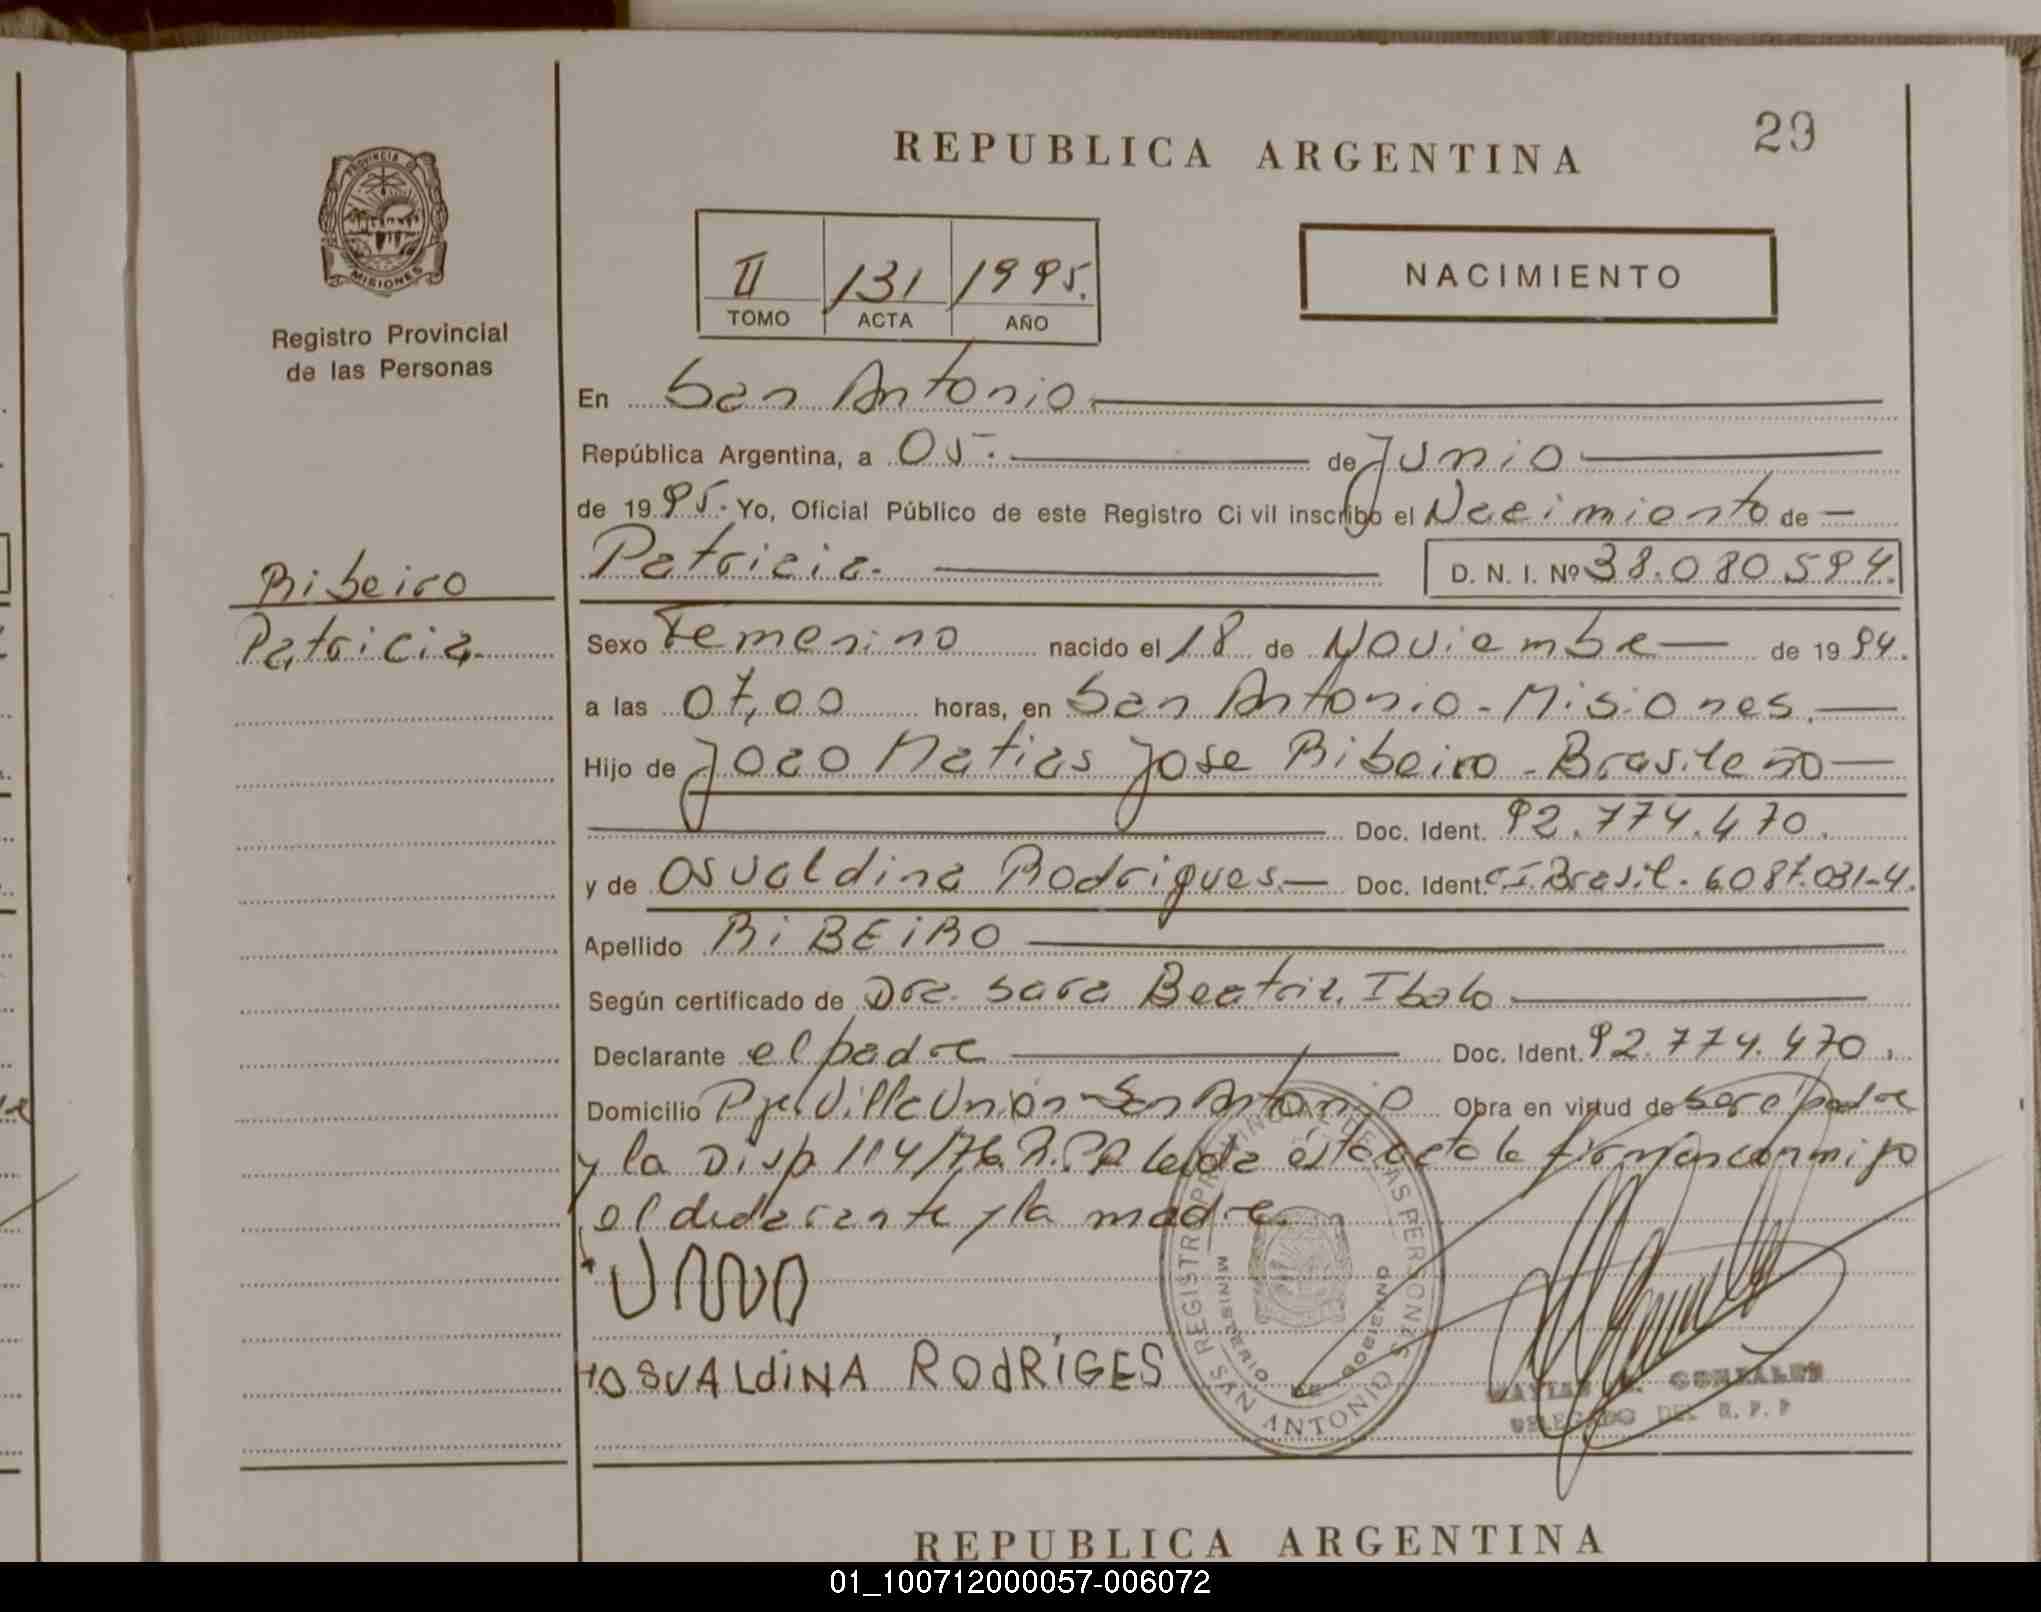 29
REPUBLICA ARGENTINA
PROVINCIA DE
MISIONES
Registro Provincial
de las Personas
II 131 1995.
TOMO ACTA AÑO
NACIMIENTO
En San Antonio.
República Argentina, a 05. de Junio
de 1995. Yo, Oficial Público de este Registro Ci vil inscribo el Nacimiento de
Ribeiro
Patricia.
Patricia. D. N. I. Nº 38.080594.
Sexo Femenino nacido el 18 de Noviembre de 1994.
a las 07,00 horas, en San Antonio - Misiones.
Hijo de Joao Matias Jose Ribeiro - Brasileño
Doc. Ident. 92.774.470.
y de Osvaldina Rodrigues. Doc. Ident. CI.Brasil. 6087.031-4.
Apellido RiBEiRO
Según certificado de Dra. Sara Beatriz Ibalo
Declarante el padre Doc. Ident. 92.774.470.
Domicilio Pje Villa Unión - San Antonio Obra en virtud de ser el padre
y la Disp. 114/76. R.P.P. leida ésta acta la firman conmigo
el declarante y la madre.
HOSVALdiNA RODRÍGES
REGISTRO PROVINCIAL DE LAS PERSONAS
MINISTERIO DE GOBIERNO
SAN ANTONIO
GONZALES
DELEGADO DEL R. P. P
REPUBLICA ARGENTINA
01_100712000057-006072